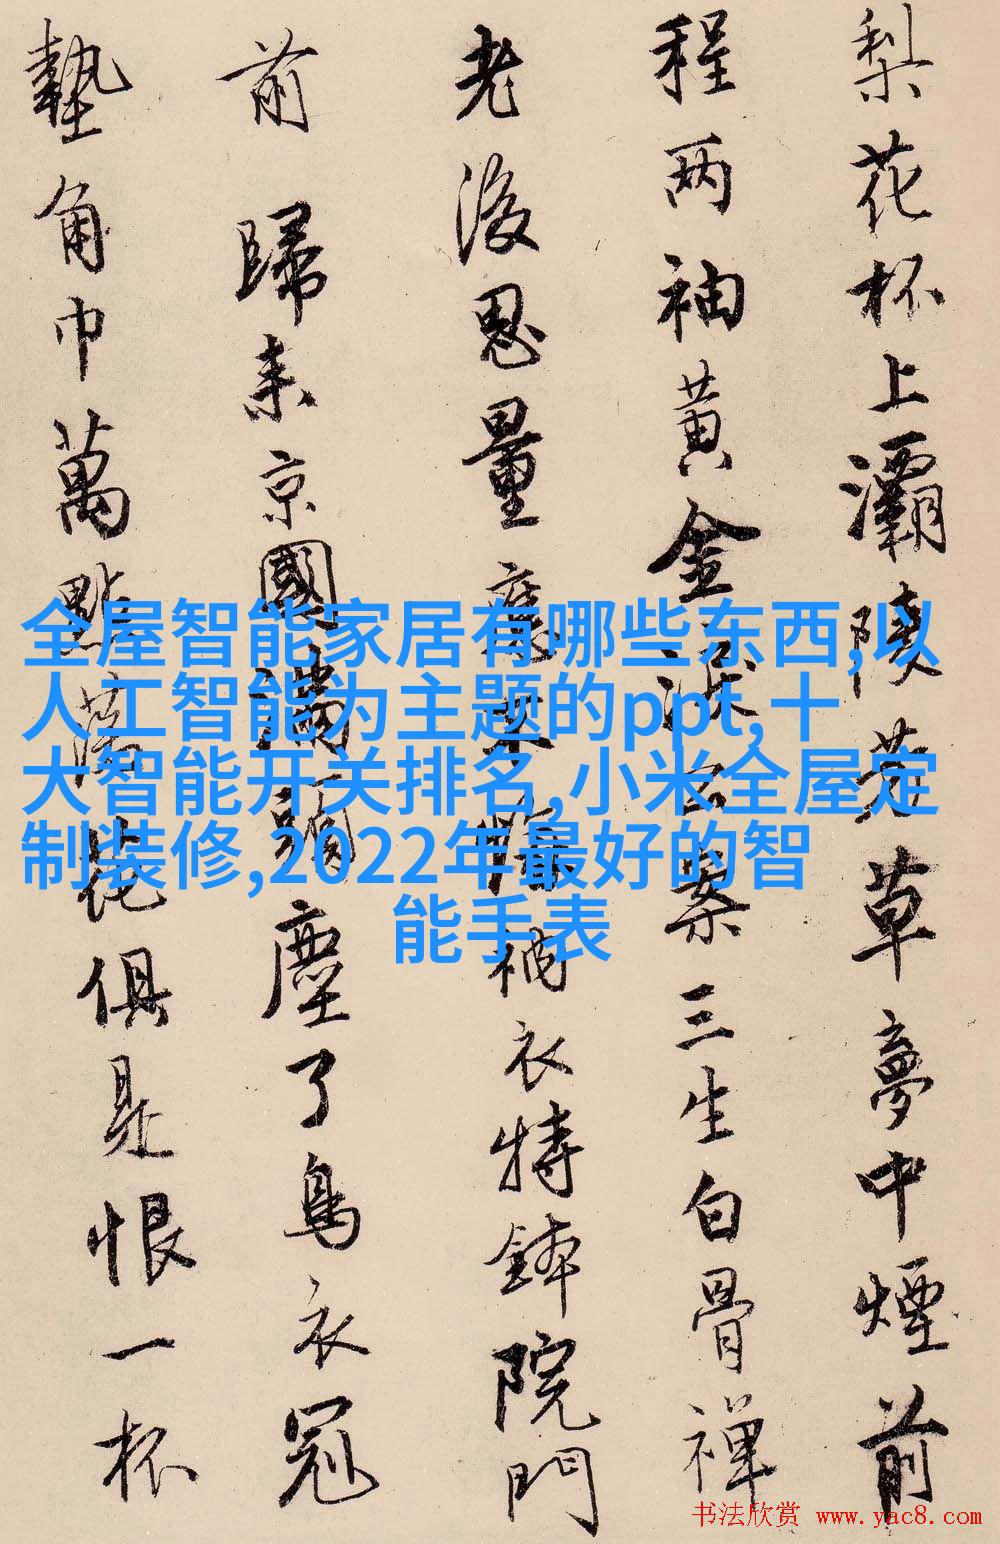 梨花杯上灞陵芳草夢中煙前
程两袖黄金淚公案三生白骨禪
老後思量應悔衲衣特鉢院門
前 歸来京國滿塵了鳥衣冠
墊角巾萬點落花俱是恨一杯
全屋智能家居有哪些东西,以
人工智能为主题的ppt,十
大智能开关排名,小米全屋定
制装修,2022年最好的智
能手表
书法欣赏 www.yac8.com